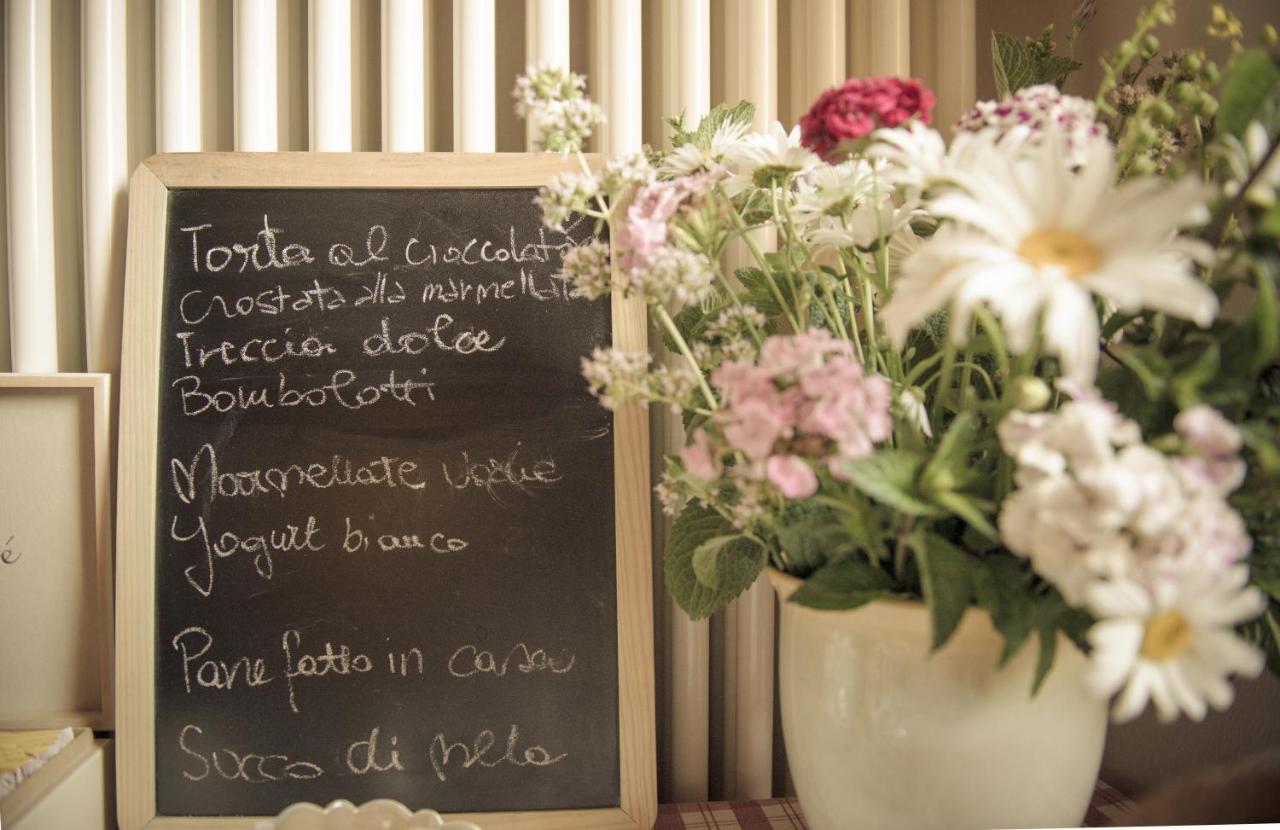 Torta al cioccolato
Crostata alla marmellata
Treccia dolce
Bombolotti
Marmellate varie
Yogurt bianco
Pane fatto in casa
Succo di mela
é